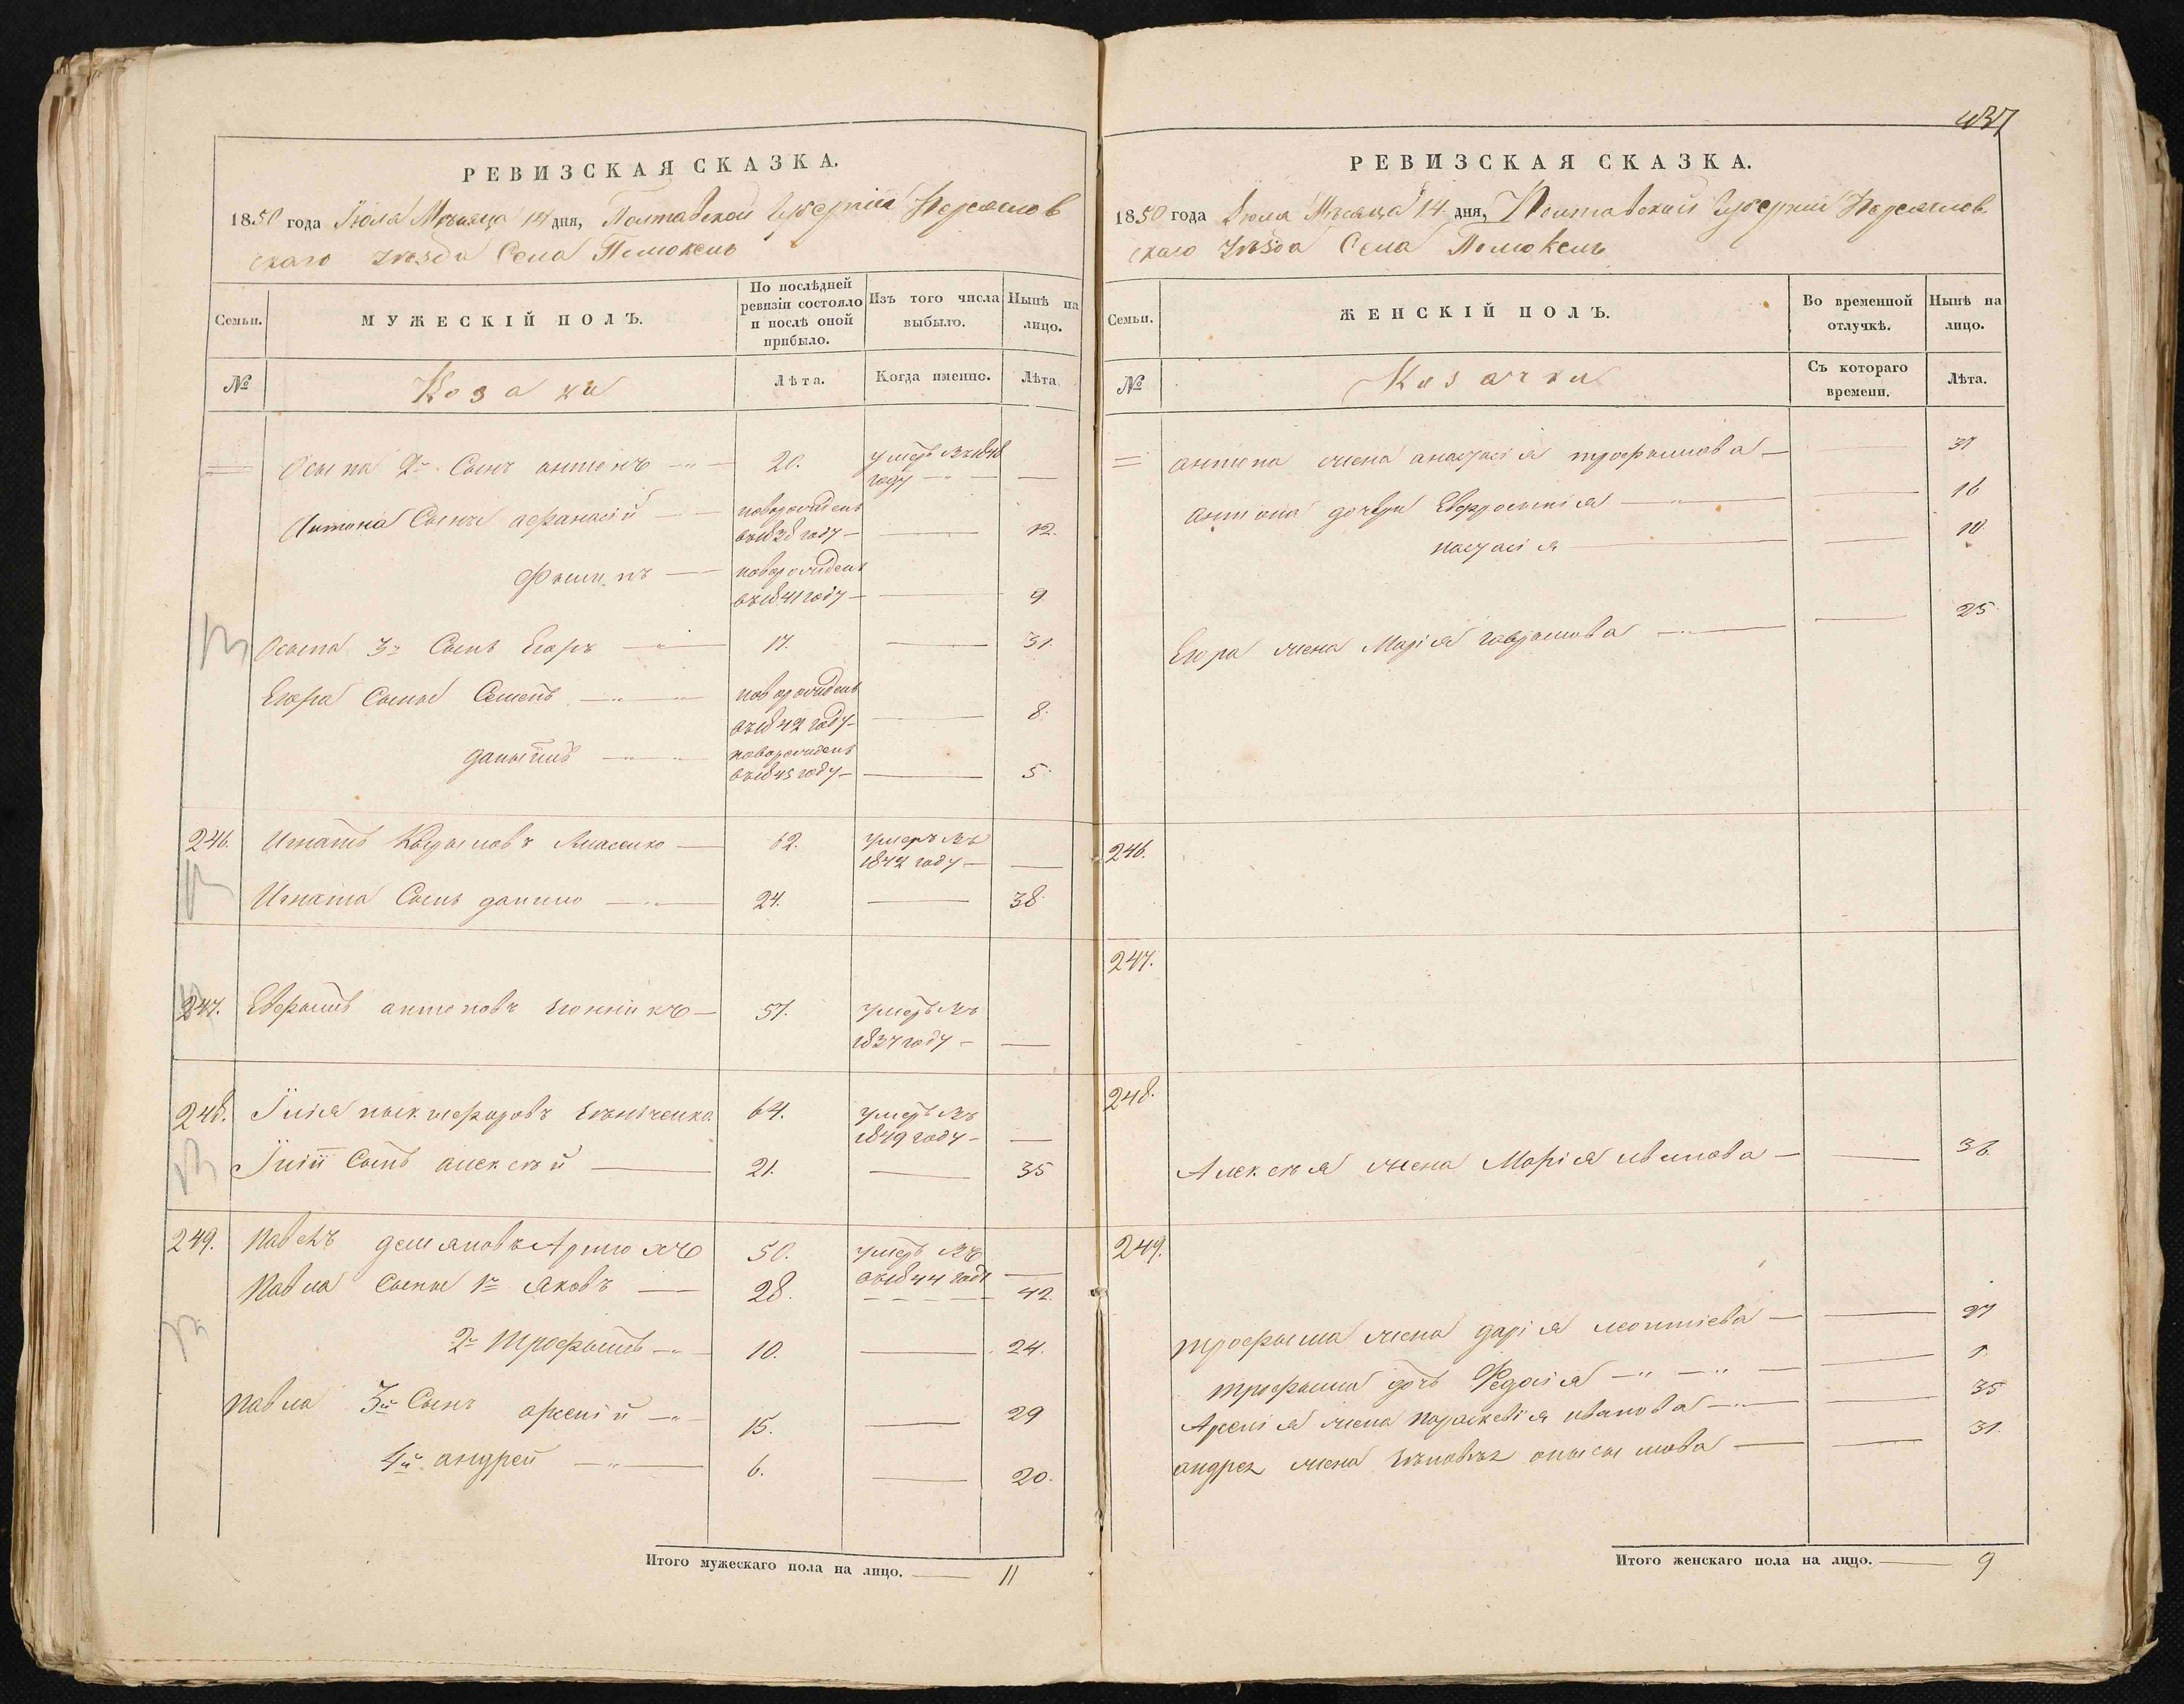 437
РЕВИЗСКАЯ СКАЗКА.
1850 года Іюля Мѣсяца 14 дня, Полтавской Губерніи Переяслов
скаго уѣзда Села Помоклъ
Семьи.
МУЖЕСКІЙ ПОЛЪ.
По послѣдней
ревизіи состояло
и послѣ оной
прибыло.
Изъ того числа
выбыло.
Нынѣ на
лицо.
№
Козаки
Лѣта.
Когда именно.
Лѣта
Осипа 2й Сынъ антонъ 20. умеръ въ 1848
году
Антона Сыны афанасій новорожденъ
въ 1838 году 12.
Филипъ новорожденъ
въ 1841 году 9
Осыпа 3й Сынъ Егоръ 17. 31.
Егора Сыны Семенъ новорожденъ
въ 1842 году 8.
даныилъ новорожденъ
въ 1845 году 5.
246. Игнатъ Кырыловъ Власенко 62. умеръ въ
1842 году
Игната Сынъ данило 24. 38.
247. антоновъ 57. умеръ въ
1837 году
248. Ілія ныкыфоровъ 64. умеръ въ
1849 году
Іліи Сынъ алексѣй 21. 35
249. Павелъ демяновъ 50. умеръ въ
въ 1844 годе
Павла Сыны 1й Яковъ 28. 42.
2й Трофымъ 10. 24.
Павла 3й Сынъ арсеній 15. 29
4й андрей 6. 20.
Итого мужескаго пола на лицо. 11
РЕВИЗСКАЯ СКАЗКА.
1850 года Іюля Мѣсяца 14 дня, Полтавской Губерніи Переяслов
скаго уѣзда Села Помоклъ
Семьи.
ЖЕНСКІЙ ПОЛЪ.
Во временной
отлучкѣ.
Нынѣ на
лицо.
№
Козачки
Съ котораго
времени.
Лѣта.
антона жена анастасія трофымова 37
антона дочери Евфросинія 16
настасія 10
Егора жена Марія 25
246.
247.
248.
Алексѣя жена Марія иванова 36
249.
трофыма жена дарія леонтіева 27
трофыма дочь Федосія 1.
Арсенія жена параскевія иванова 35
андрея жена 31.
Итого женскаго пола на лицо. 9